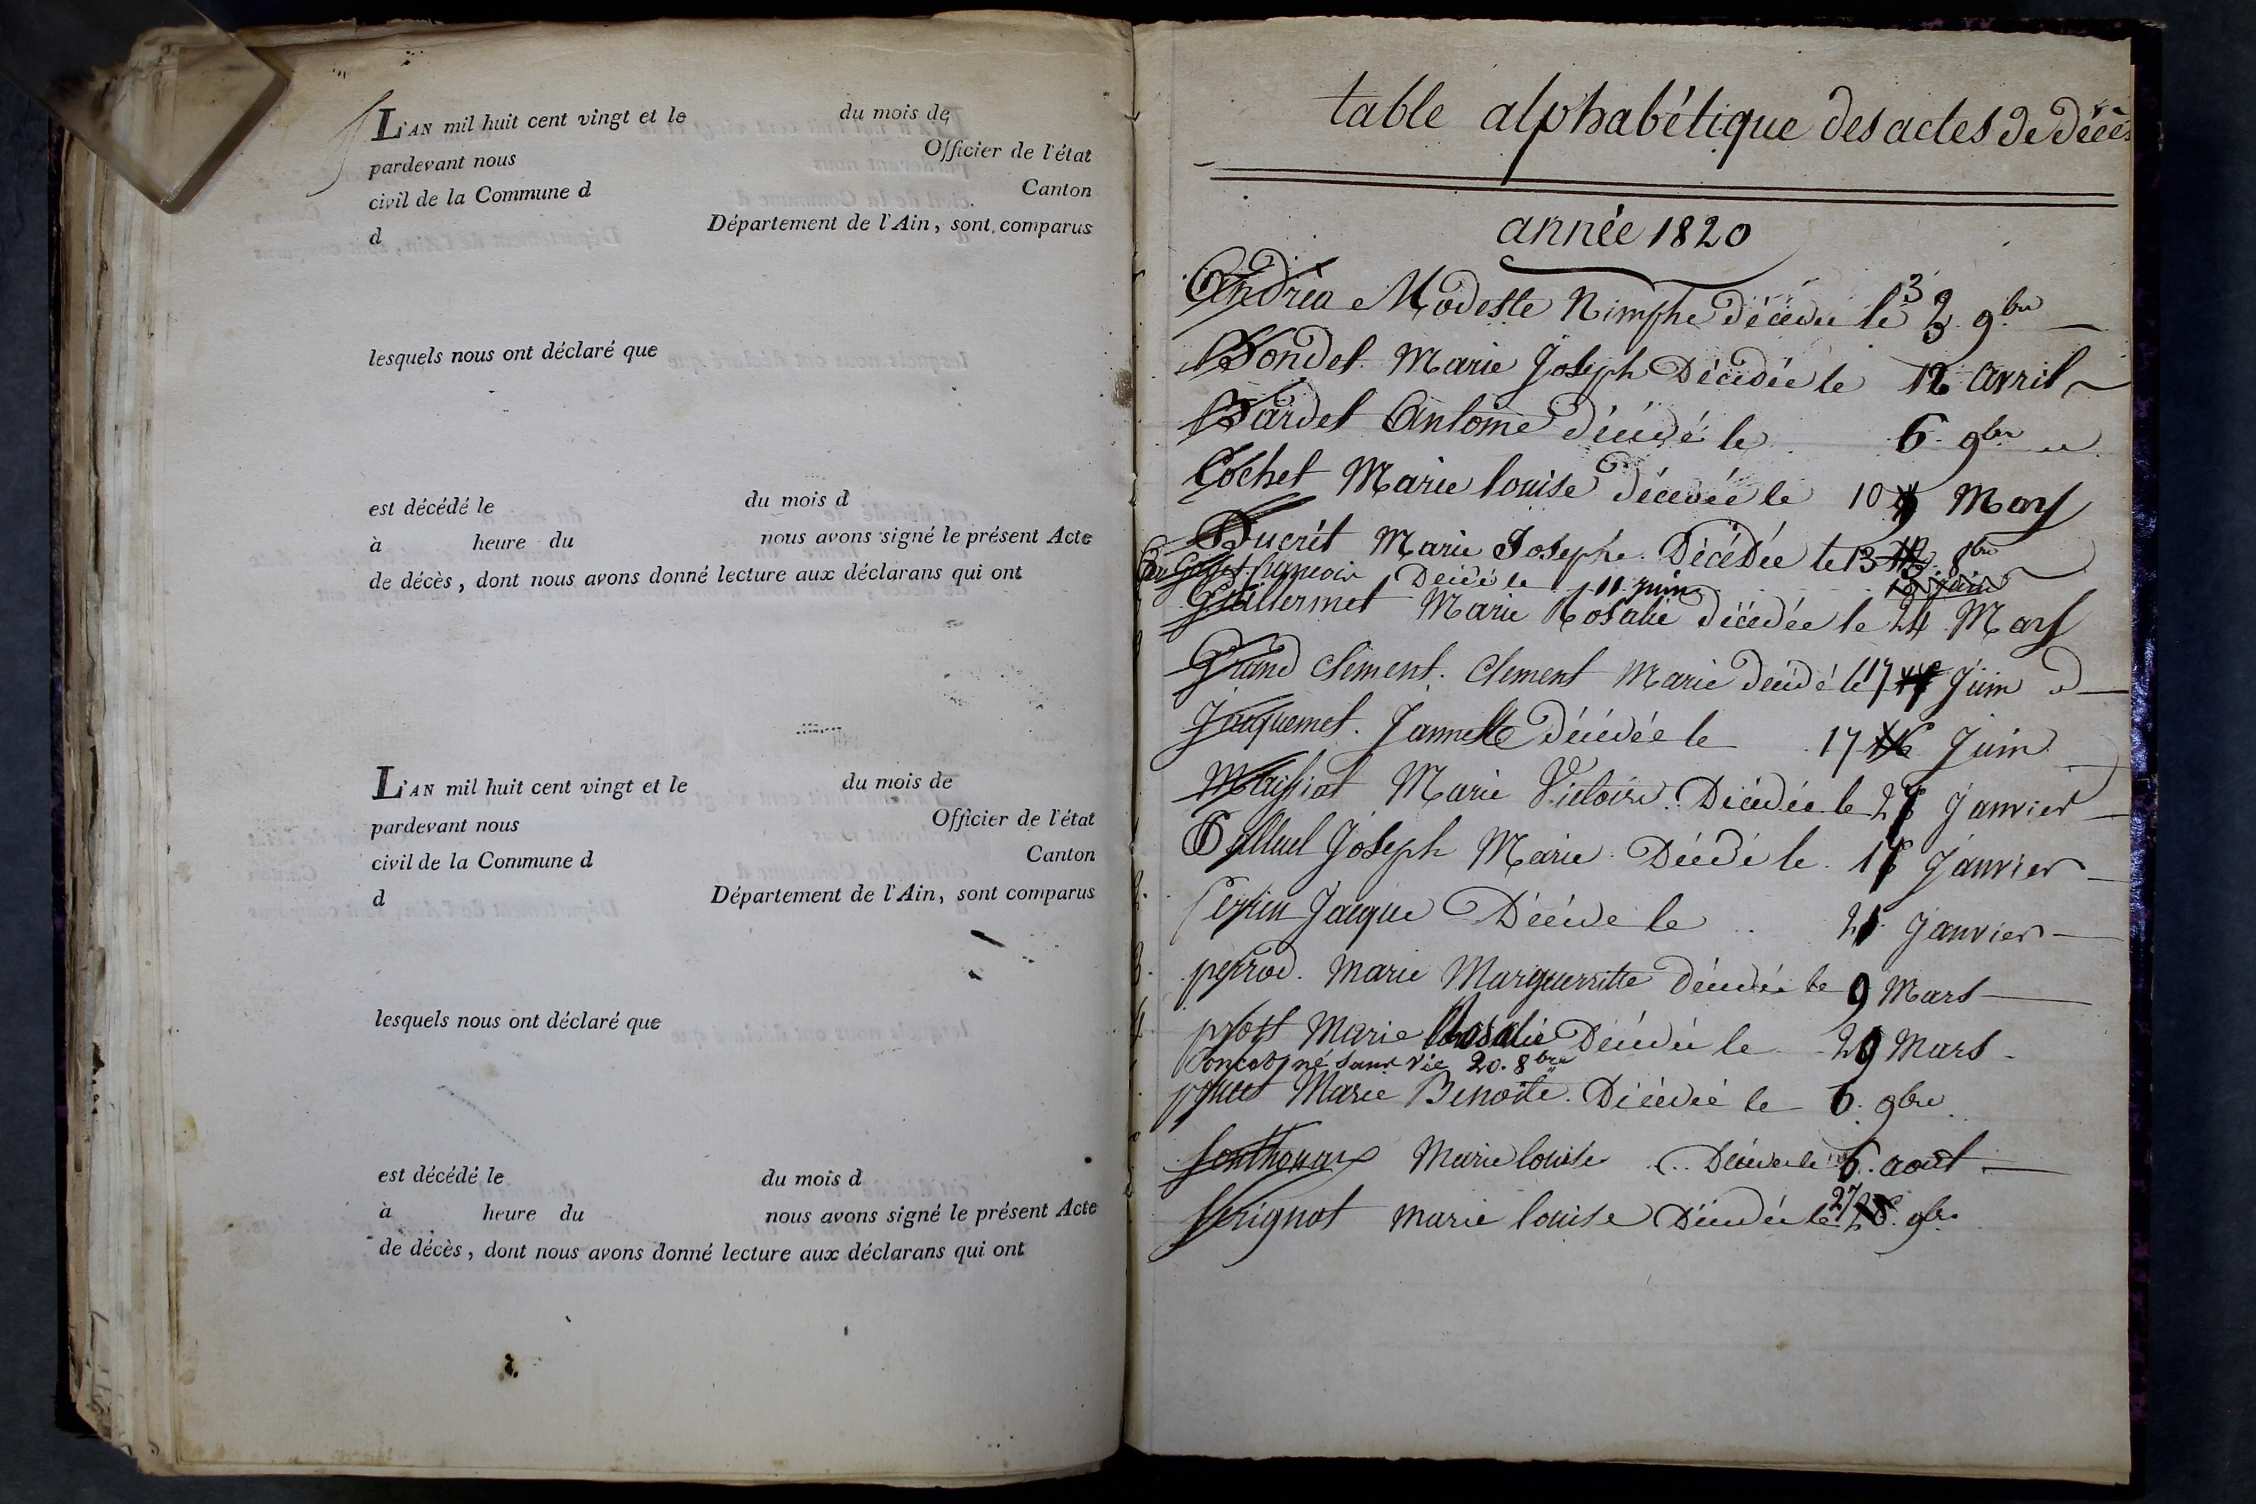 L'AN mil huit cent vingt et le du mois de
pardevant nous Officier de l'état
civil de la Commune d Canton
d Département de l'Ain, sont comparus
lesquels nous ont déclaré que
est décédé le du mois d
à heure du nous avons signé le présent Acte
de décès, dont nous avons donné lecture aux déclarans qui ont
L'AN mil huit cent vingt et le du mois de
pardevant nous Officier de l'état
civil de la Commune d Canton
d Département de l'Ain, sont comparus
lesquels nous ont déclaré que
est décédé le du mois d
à heure du nous avons signé le présent Acte
de décès, dont nous avons donné lecture aux déclarans qui ont
table alphabétique des actes de décès
année 1820
Andréa Modeste Nimphe décédée le 3 9bre
Bondet Marie Joseph Décédée le 12 avril
Bardet Antoine décédé le 6 9bre
Cochet Marie louise décédée le 10 Mars
Ducrèt Marie Josephe Décédée le 13 8bre
françois Décédé le 11 juin
Guillermet Marie Rosalie décédée le 24 Mars
Grand Clement. Clement Marie décédé le 17 Juin
Jacquemet. Jannette décédée le 17 Juin
Maissiat Marie Victoire Décédée le 27 Janvier
Joseph Marie Décédé le Janvier
Jacque Décédé le 21 Janvier
perrod. Marie Marguerritte décédée le 9 Mars
prost Marie Rosalie Décédée le 29 Mars
né sans vie 20. 8bre
Marie Benoite. Décédée le 6. 9bre
Sonthonax Marie louise Décédée le 6. août
Serignat Marie louise Décédée le 27 9bre